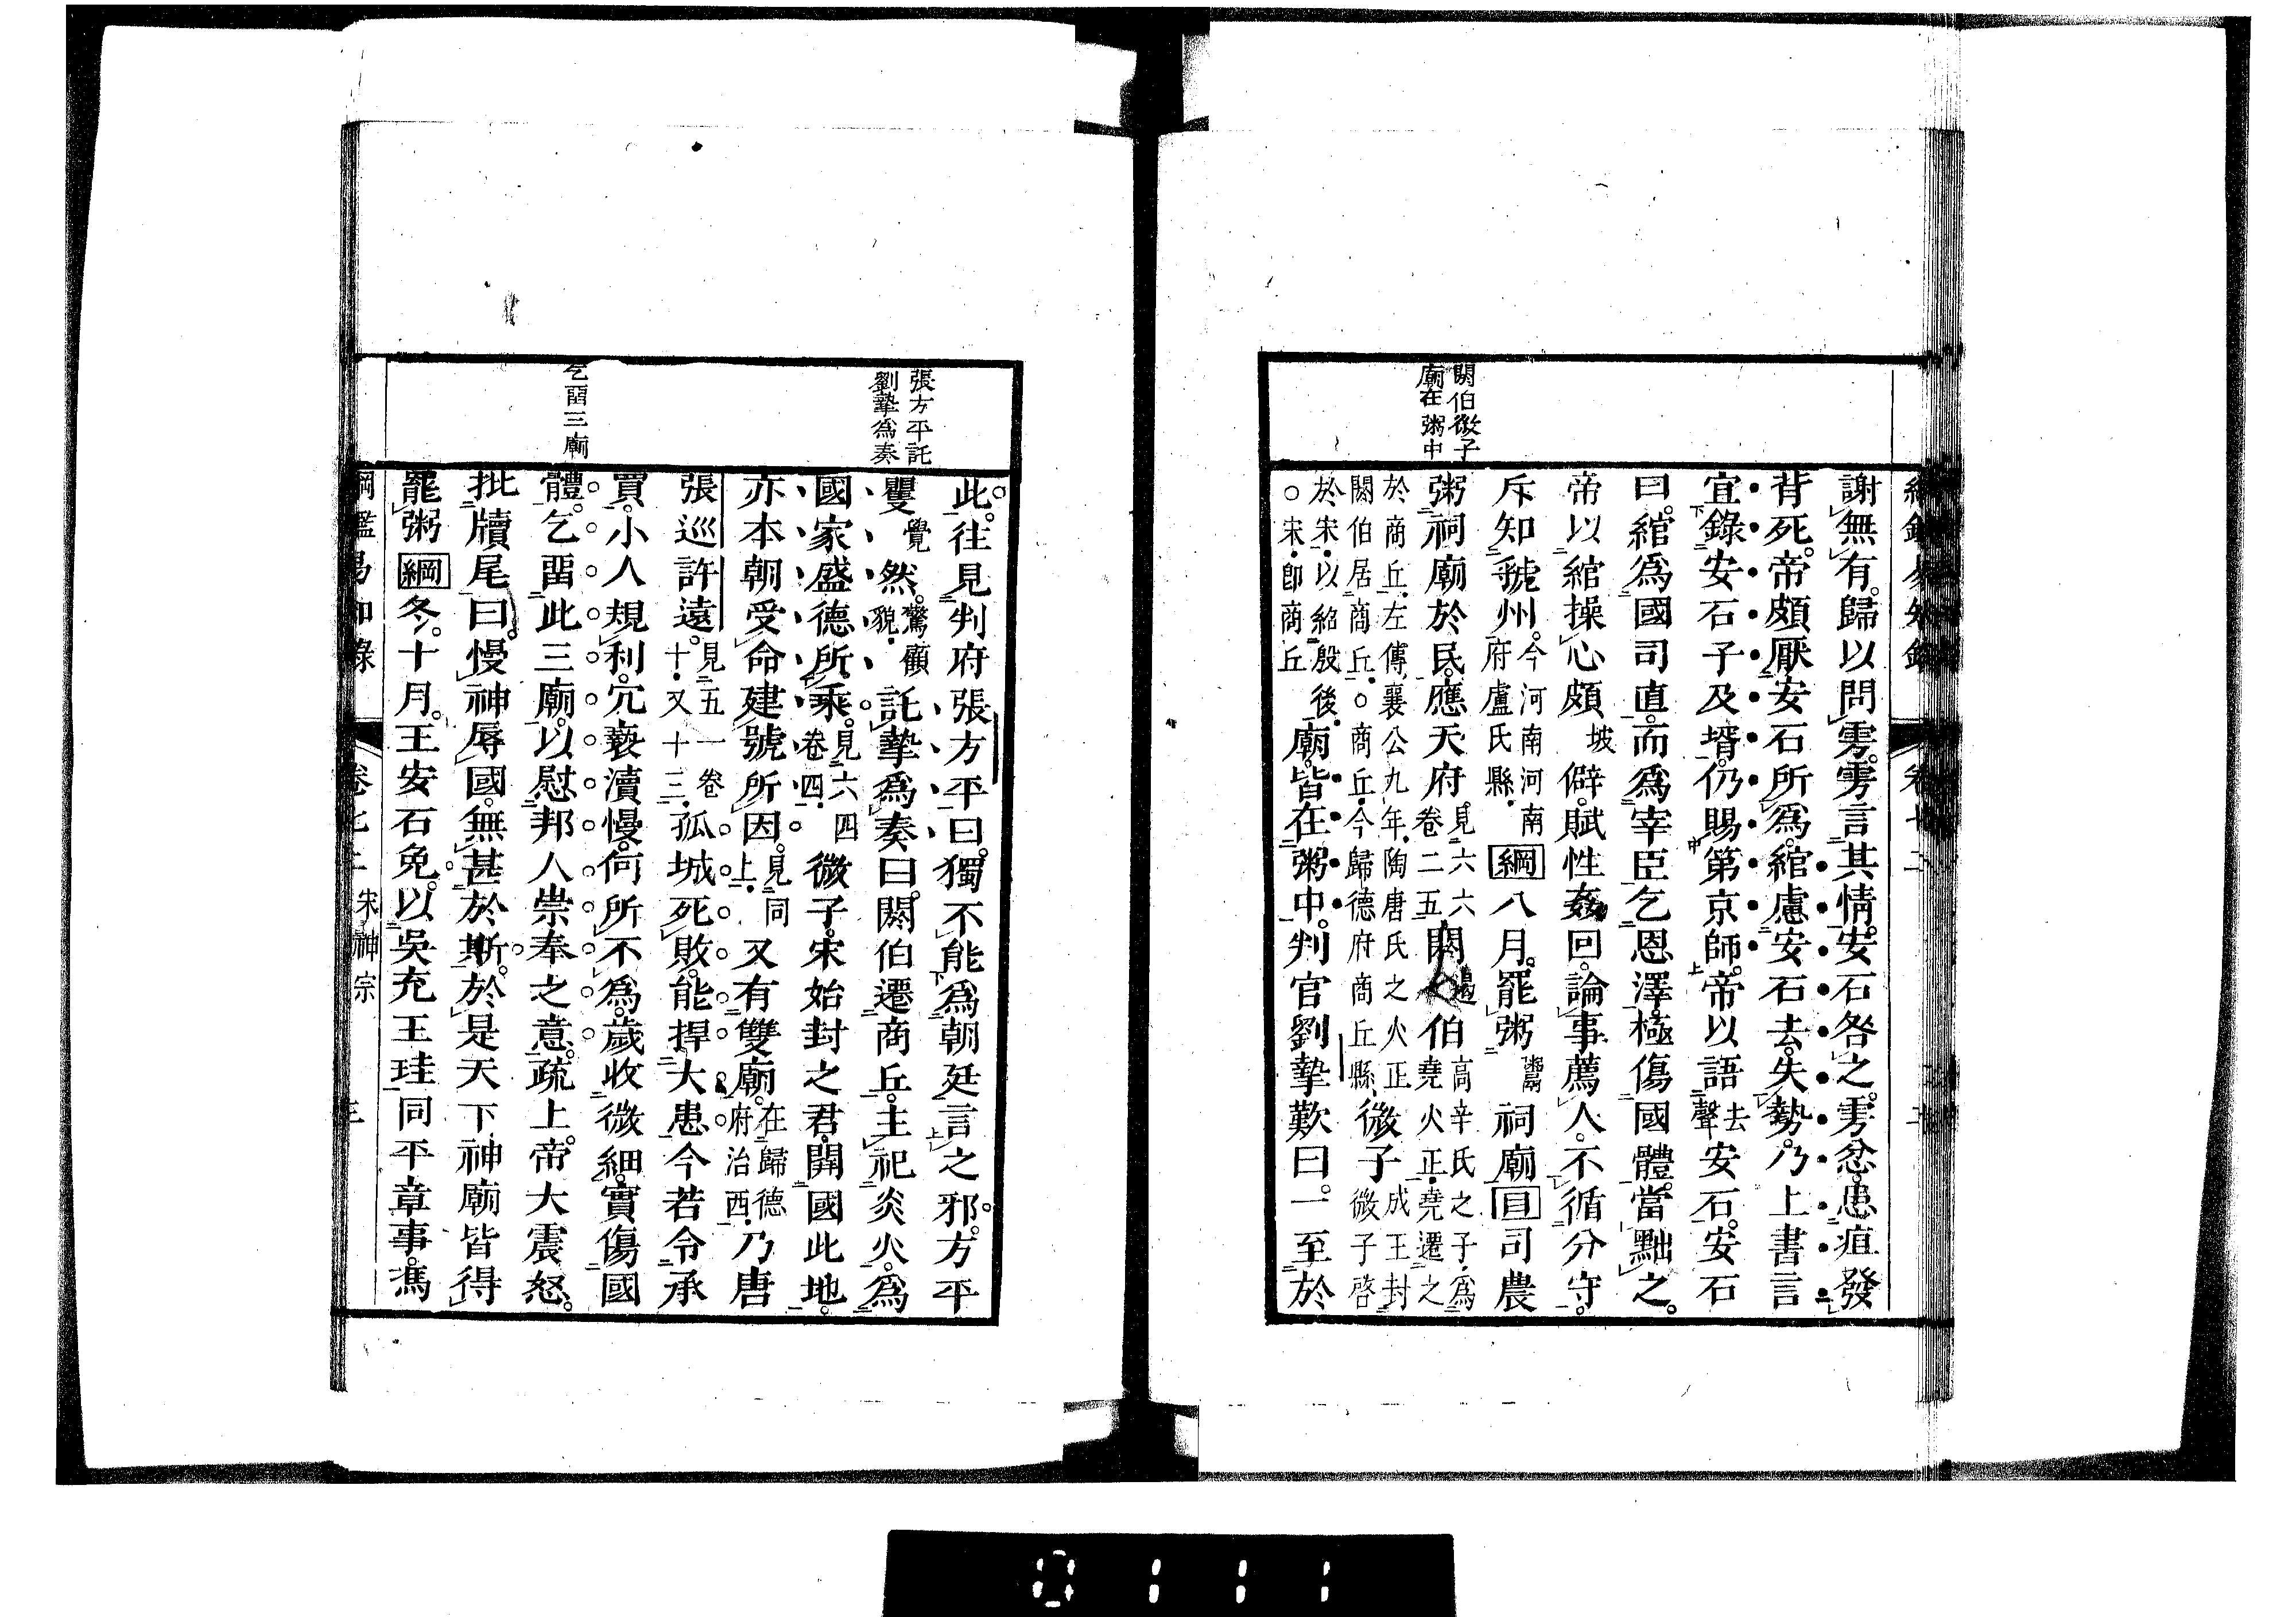 閼伯微子
廟在粥中
謝無有。歸以問雱。雱言其情。安石咎之。雱忿恚。疽發
背死。帝頗厭安石所爲。綰慮安石去失勢。乃上書言
宜錄安石子及壻。仍賜第京師。帝以語去聲安石。安石
曰。綰爲國司直。而爲宰臣乞恩澤。極傷國體。當黜之。
帝以綰操心頗坡僻。賦性姦回。論事薦人。不循分守。
斥知虢州。今河南河南府盧氏縣綱八月。罷粥鬻祠廟目司農
粥祠廟於民。應天府見六六卷二五閼遏伯高辛氏之子。爲堯火正。堯遷之
於商丘。左傳襄公九年。陶唐氏之火正閼伯居商丘。○商丘今歸德府商丘縣微子成王封微子啓
於宋。以紹殷後。○宋卽商丘廟。皆在粥中。判官劉摯歎曰。一至於
張方平託
劉摯爲奏
乞留三廟
此。往見判府張方平曰。獨不能爲朝廷言之邪。方平
瞿覺然。驚顧貌託摯爲奏曰。閼伯遷商丘。主祀炎火。爲
國家盛德所乘。見六四卷四微子。宋始封之君。開國此地。
亦本朝受命建號所因。見同上又有雙廟。在歸德府治西乃唐
張巡許遠。見五一卷十又十三孤城死敗。能捍大患。今若令承
買。小人規利。冗褻瀆慢。何所不爲。歲收微細。實傷國
體。乞畱此三廟。以慰邦人崇奉之意。疏上。帝大震怒。
批牘尾曰。慢神辱國。無甚於斯。於是天下神廟皆得
罷粥綱冬。十月。王安石免。以吳充王珪同平章事。馮
綱鑑易知錄 卷七二 宋神宗 三
0111